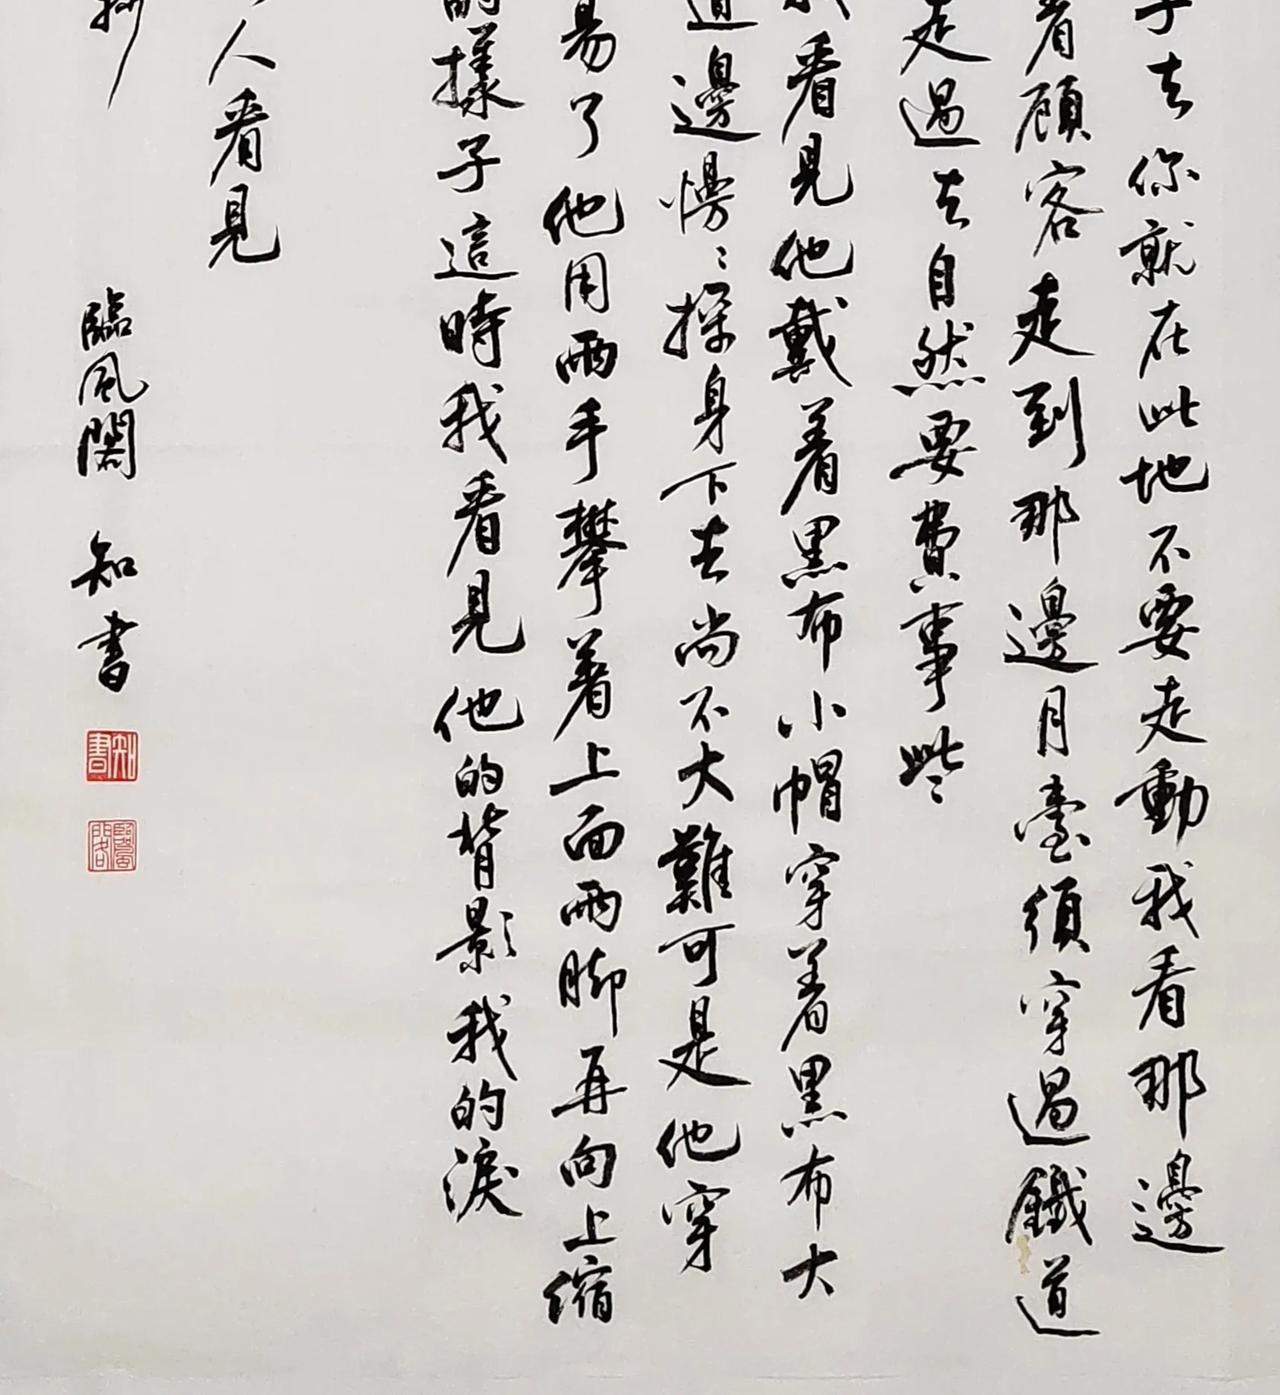 子去你就在此地不要走動我看那邊
着顧客走到那邊月臺須穿過鐵道
走過去自然要費事些
我看見他戴着黑布小帽穿着黑布大
道邊慢慢探身下去尚不大難可是他穿
易了他用兩手攀着上面兩脚再向上縮
的樣子這時我看見他的背影我的淚
人看見
抄
臨風閣 知書
知書